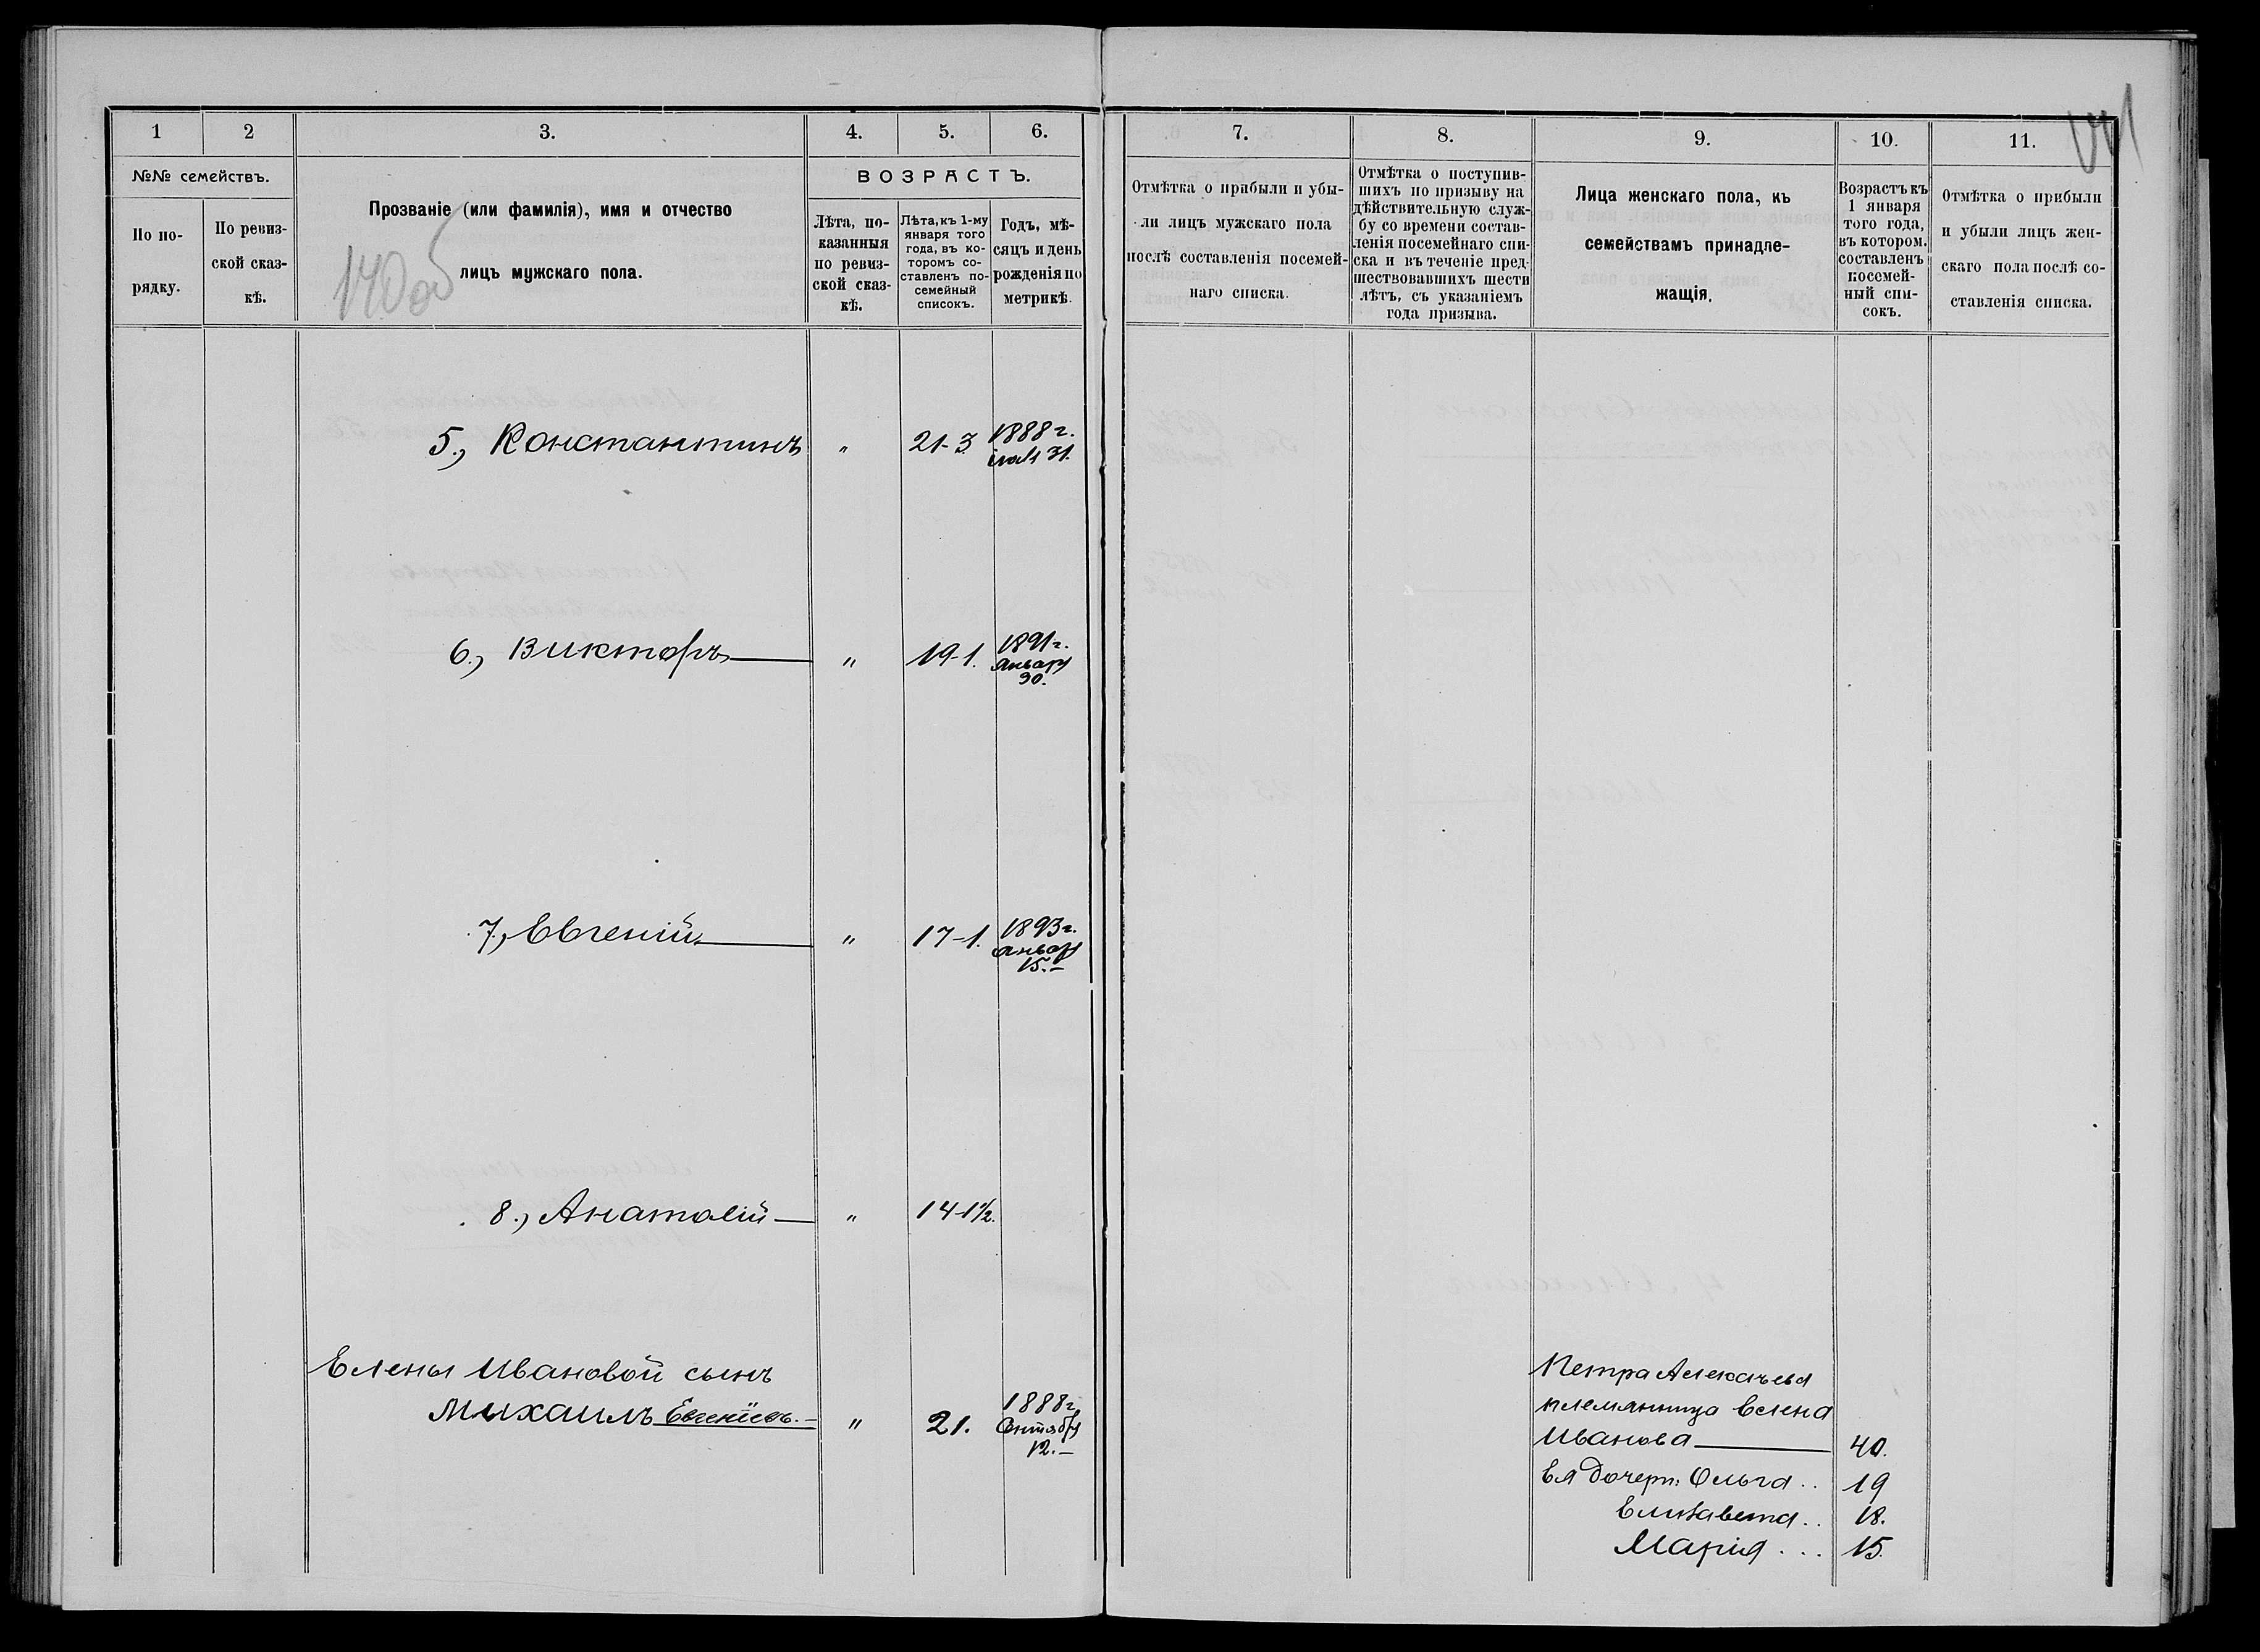 1
2
3.
4.
5.
6.
№№ семействъ.
По по-
рядку.
По ревиз-
ской сказ-
кѣ.
Прозваніе (или фамилія), имя и отчество
лицъ мужскаго пола.
140 об
ВОЗРАСТЪ.
Лѣта, по-
казанныя
по ревиз-
ской сказ-
кѣ.
Лѣта, къ 1-му
января того
года, въ ко-
торомъ со-
ставленъ по-
семейный
списокъ.
Годъ, мѣ-
сяцъ и день
рожденія по
метрикѣ.
5., Константинъ " 21-3 1888 г.
31.
6., Викторъ " 19-1. 1891 г.
Январ
30.
7., Евгеній " 17-1. 1893 г.
Январ
15.-
8., Анатолій " 14-1½.
Елены Ивановой сынъ
Михаилъ Евгеніевъ.- " 21. 1888 г.
Сентябр
12.-
7.
8.
9.
10.
11.
141
Отмѣтка о прибыли и убы-
ли лицъ мужскаго пола
послѣ составленія посемей-
наго списка.
Отмѣтка о поступив-
шихъ по призыву на
дѣйствительную служ-
бу со времени состав-
ленія посемейнаго спи-
ска и въ теченіе пред-
шествовавшихъ шести
лѣтъ, съ указаніемъ
года призыва.
Лица женскаго пола, къ
семействамъ принадле-
жащія.
Возрастъ къ
1 января
того года,
въ котором.
составленъ
посемей-
ный спи-
сокъ.
Отмѣтка о прибыли
и убыли лицъ жен-
скаго пола послѣ со-
ставленія списка.
Петра
племянница Елена
Иванова 40.
Ея дочери: Ольга.. 19
Елизавета.. 18.
Марія... 15.